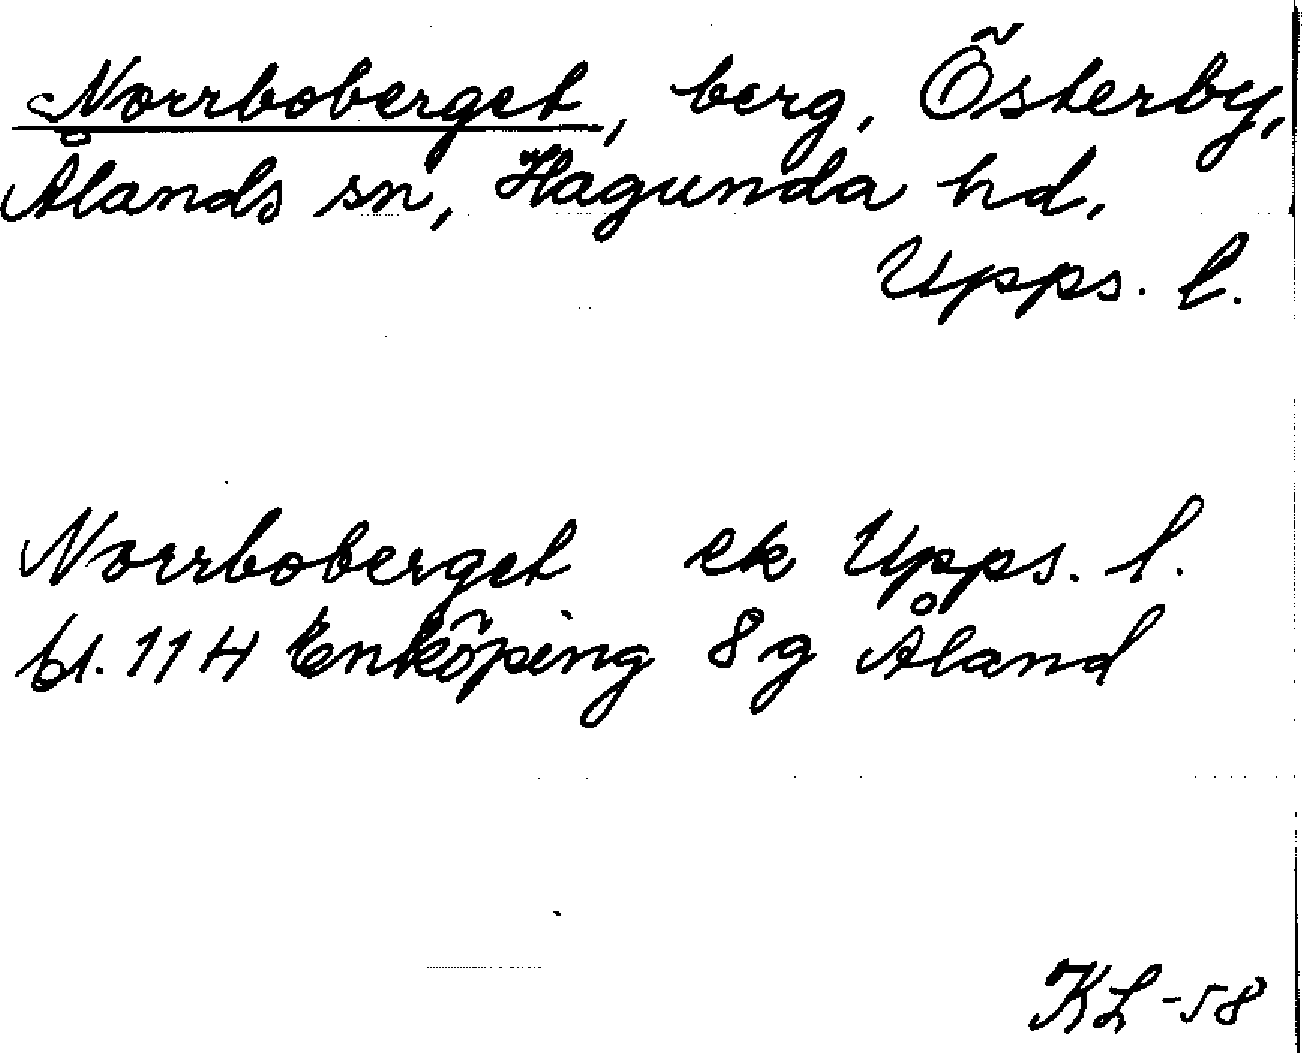 Norrboberget, berg, Österby,
Ålands sn, Hagunda hd,
Upps. l.
Norrboberget ek Upps. l.
bl. 11H Enköping 8g Åland
KL -58